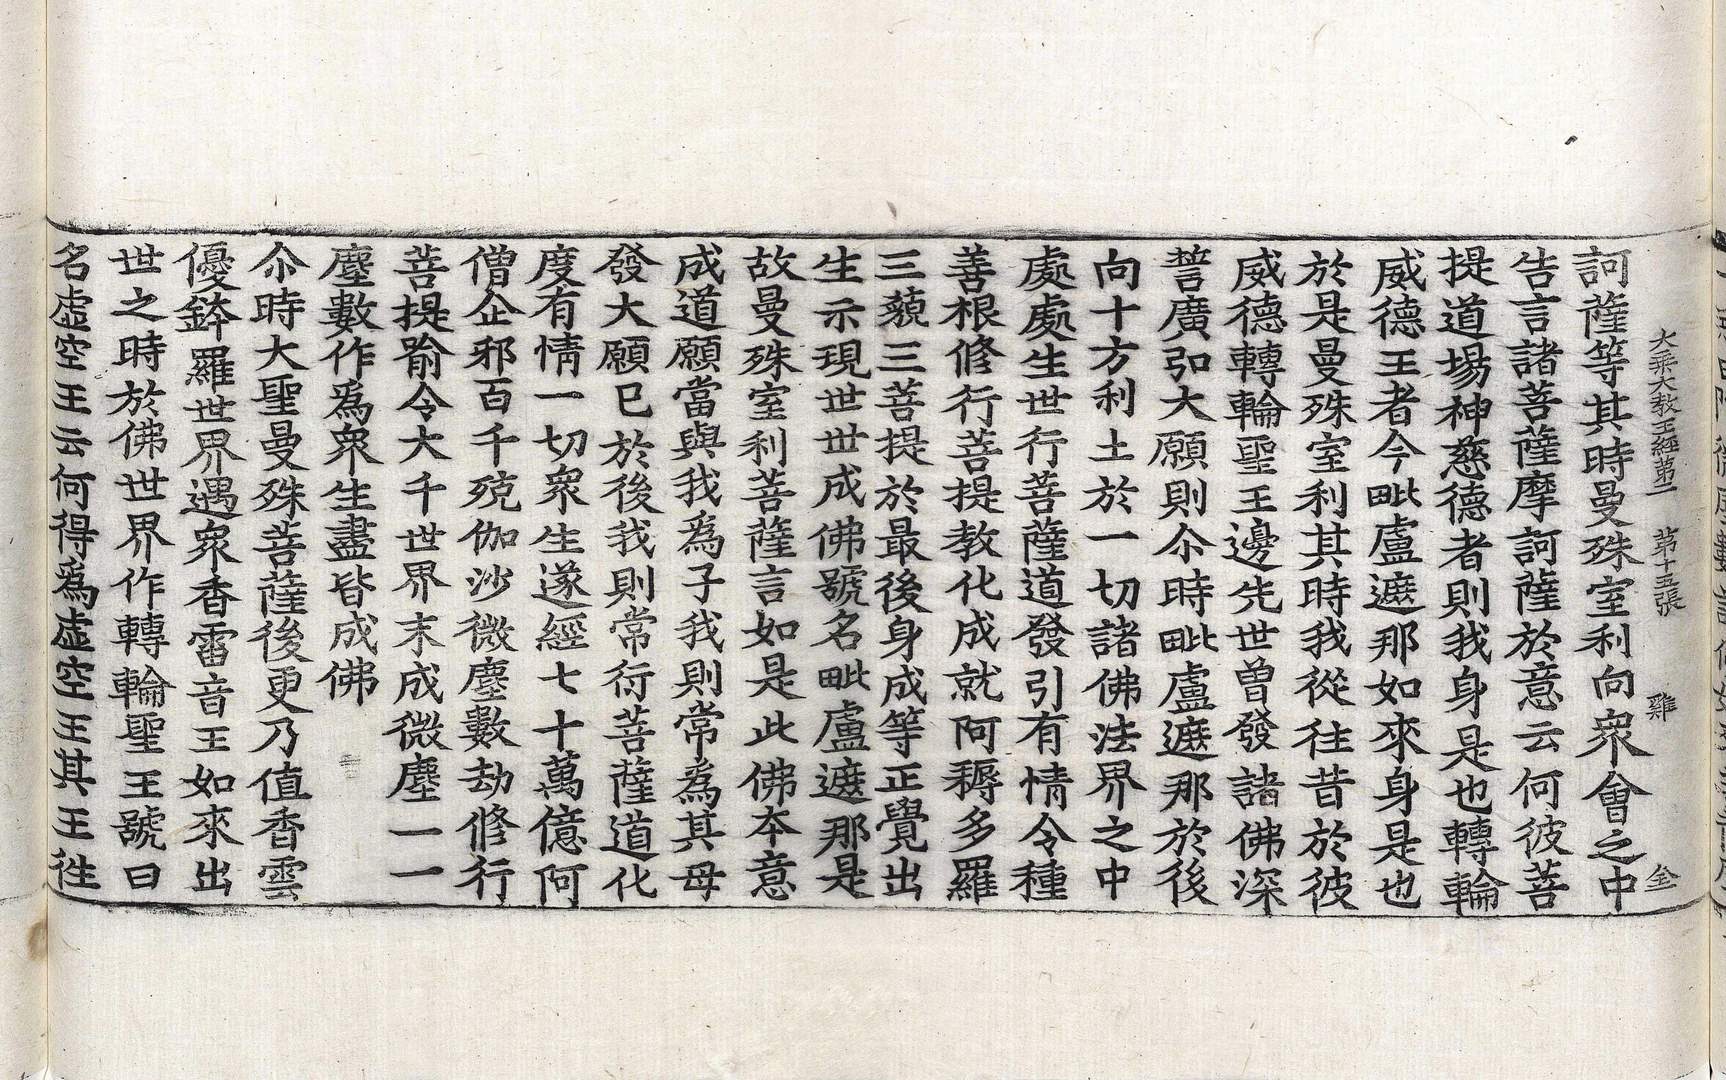 大乘大教王經第二　第十五張　雞　全
訶薩等其時曼殊室利向衆會之中
告言諸菩薩摩訶薩於意云何彼菩
提道場神慈德者則我身是也轉輪
威德王者今毗盧遮那如來身是也
於是曼殊室利其時我從往昔於彼
威德轉輪聖王邊先世曾發諸佛深
誓廣弘大願則尒時毗盧遮那於後
向十方利土於一切諸佛法界之中
處處生世行菩薩道發引有情令種
善根修行菩提教化成就阿耨多羅
三藐三菩提於最後身成等正覺出
生示現世世成佛號名毗盧遮那是
故曼殊室利菩薩言如是此佛本意
成道願當與我爲子我則常爲其母
發大願已於後我則常衍菩薩道化
度有情一切衆生遂經七十萬億阿
僧企邪百千殑伽沙微塵數劫修行
菩提喻令大千世界末成微塵一一
塵數作爲衆生盡皆成佛
尒時大聖曼殊菩薩後更乃值香雲
優鉢羅世界遇衆香雷音王如來出
世之時於佛世界作轉輪聖王號曰
名虛空王云何得爲虛空王其王往